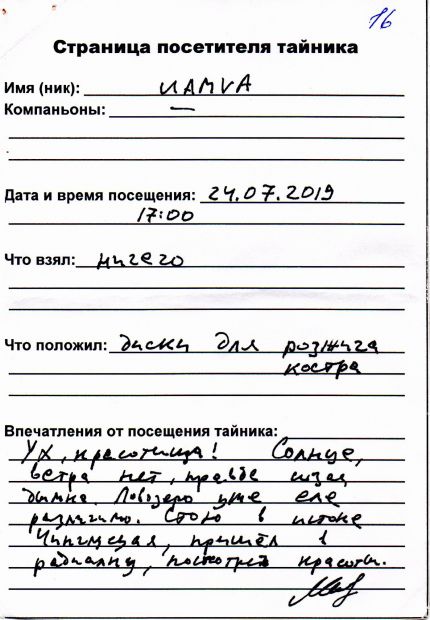 16
Страница посетителя тайника
Имя (ник): UAMVA
Компаньоны: —
Дата и время посещения: 24.07.2019
17:00
Что взял: ничего
Что положил: диски для розжига
костра
Впечатления от посещения тайника:
Ух, красотища! Солнце,
ветра нет, правда
дымка. Ловозеро уже еле
различимо. Стою в истоке
пришёл в
радиалку, посмотреть красоты.